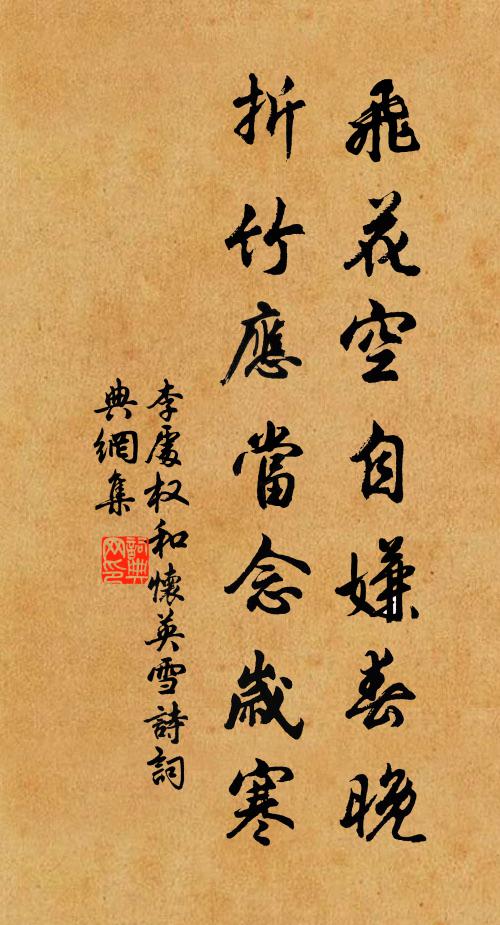 飛花空自嫌春晚
折竹應當念歲寒
李處权和懷英雪詩詞
典網集
詞典
网印